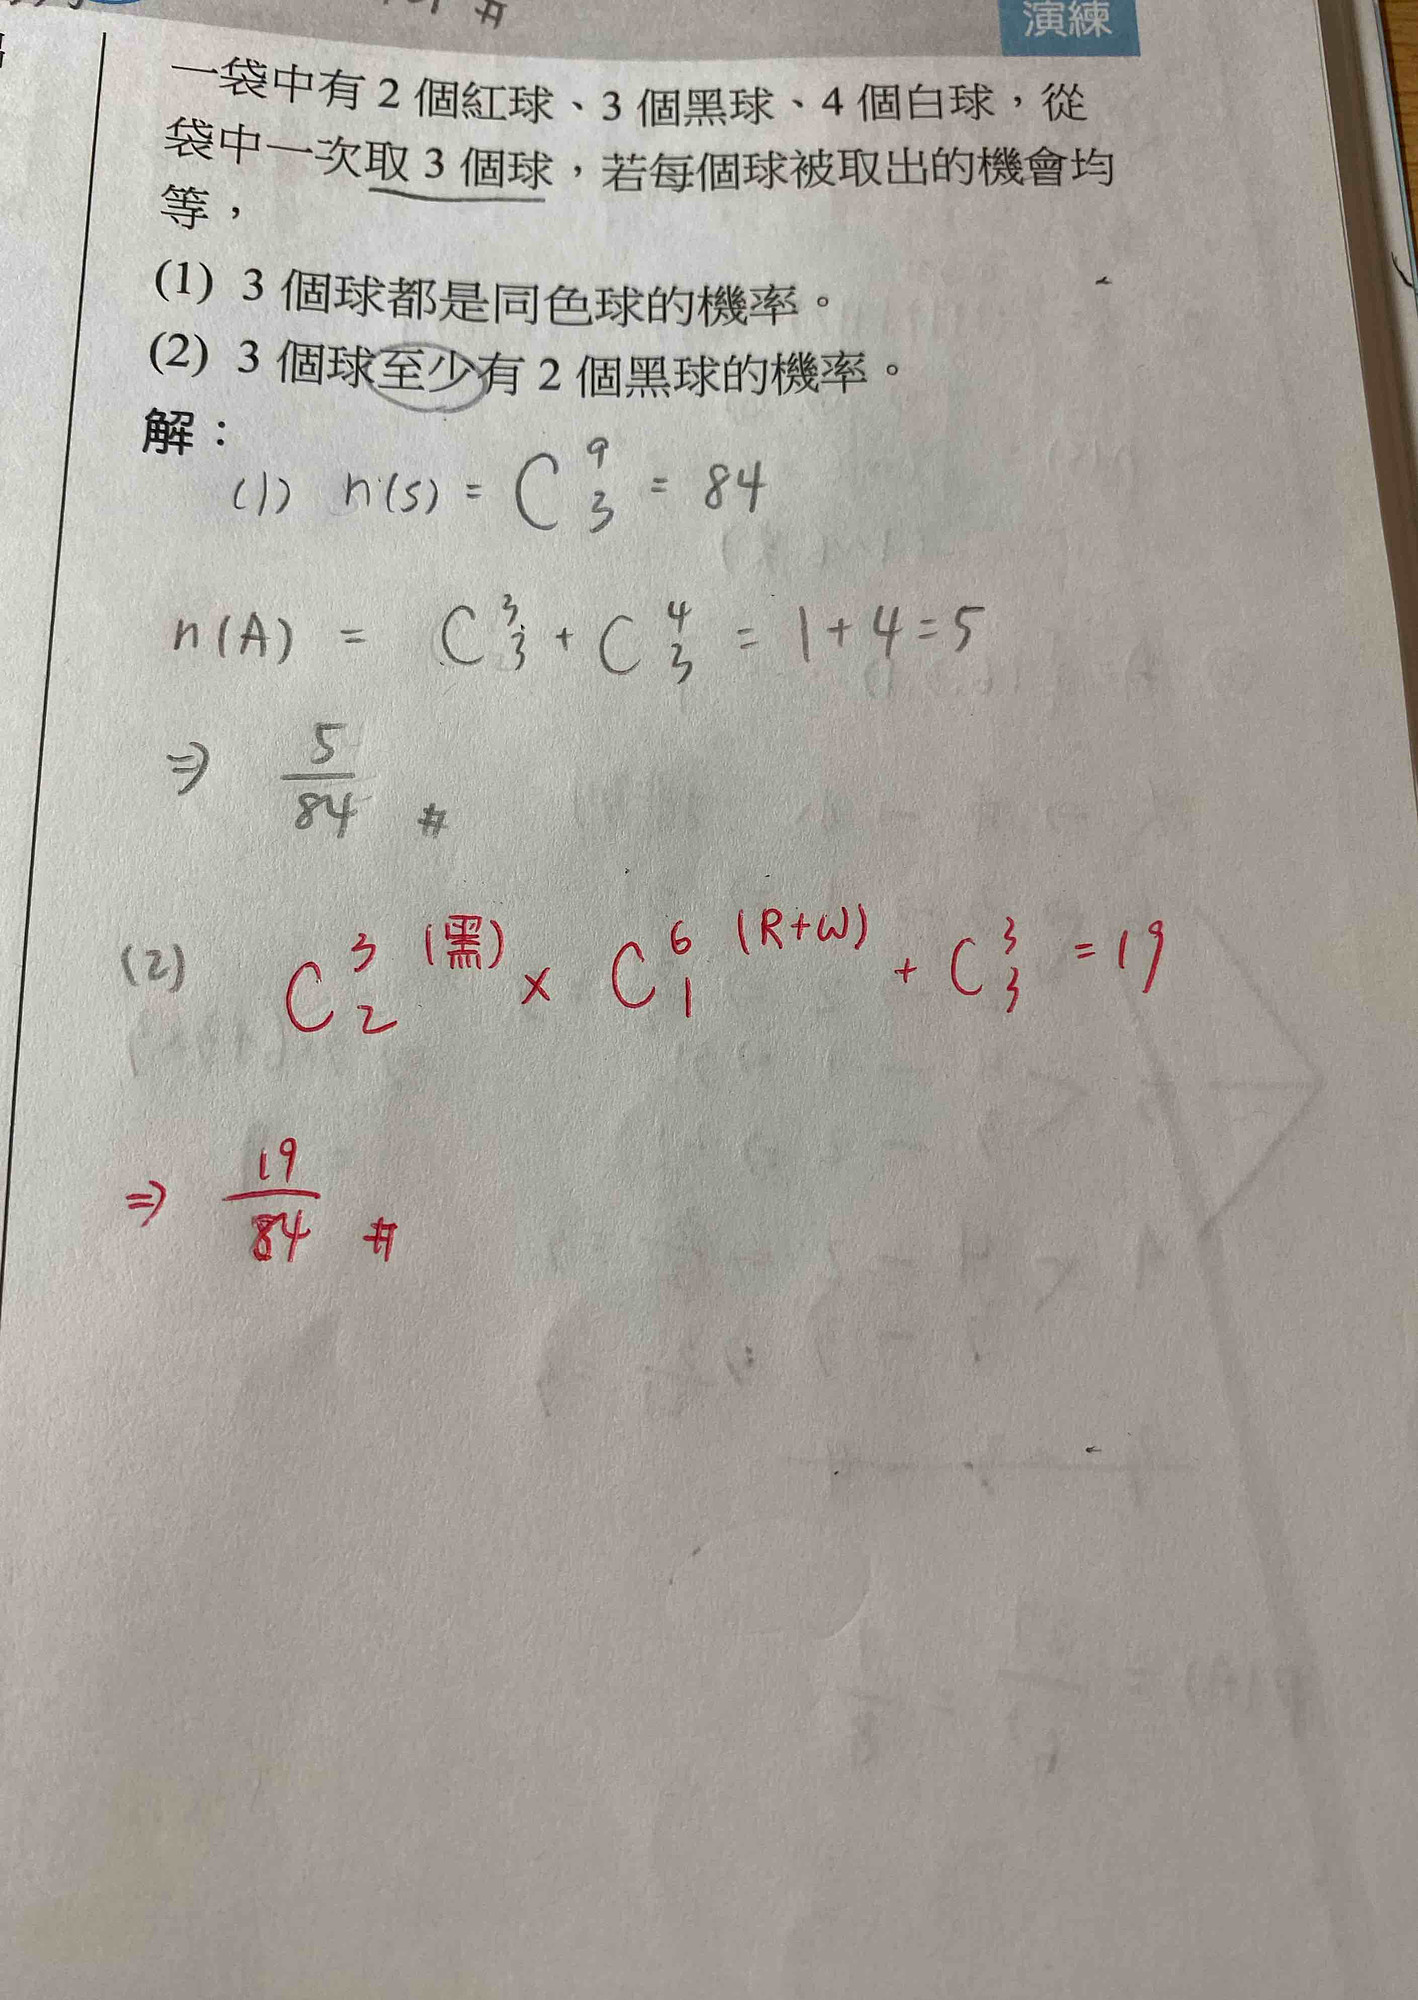 演練
一袋中有 2 個紅球、3 個黑球、4 個白球，從
袋中一次取 3 個球，若每個球被取出的機會均
等，
(1) 3 個球都是同色球的機率。
(2) 3 個球至少有 2 個黑球的機率。
解：
(1) n(s) = C 9 3 = 84
n(A) = C 3 3 + C 4 3 = 1+4=5
⇒ 5/84 #
(2) C 3 2 (黑) × C 6 1 (R+W) + C 3 3 = 19
⇒ 19/84 #